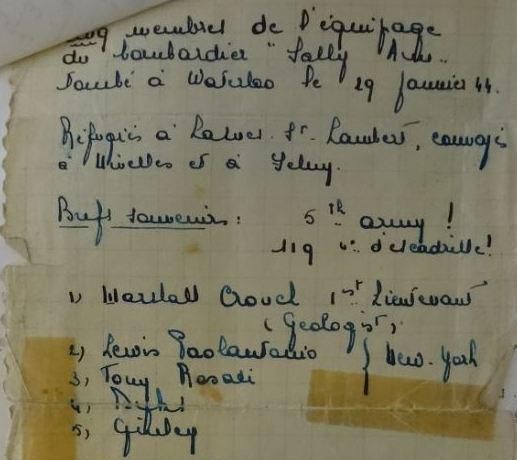 cinq membres de l'équipage
du bombardier "Sally Ann"
tombé à Waterloo le 29 janvier 44.
Réfugiés à Lasnes-St-Lambert, convoyés
à Nivelles et à
Brefs souvenirs : 5th army !
119 d'escadrille !
1) Marshall Crouch 1st Lieutenant
(Geologist),
2) Lewis Paolantonio } New-York
3) Tony Rosati
4)
5) Ginley